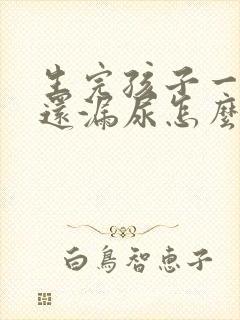 生完孩子一
還漏尿怎麼
白鳥智恵子